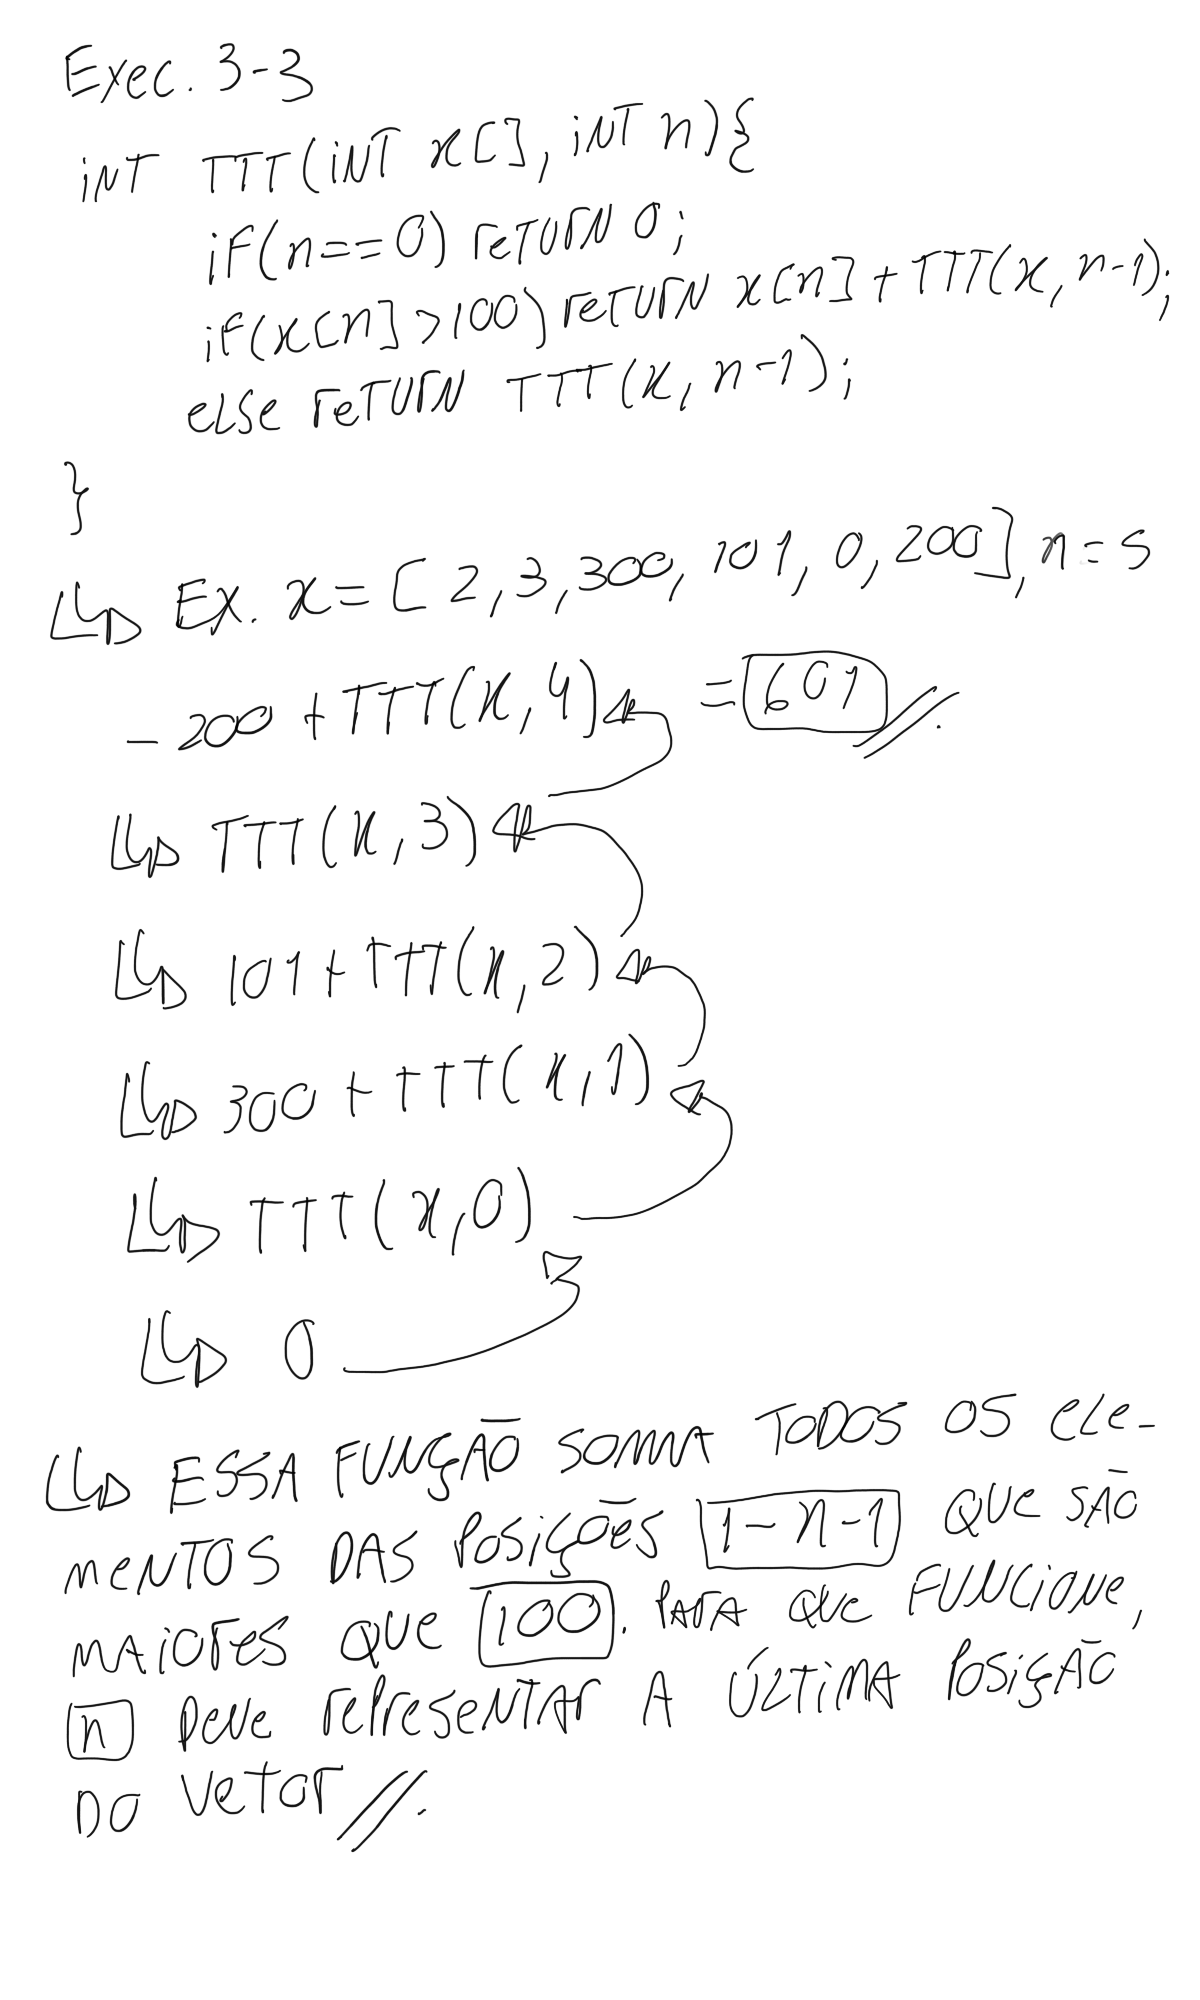 Exec. 3-3
int TTT(int x[], int n){
if(n==0) return 0;
if(x[n]>100) return x[n]+TTT(x, n-1);
else return TTT(x, n-1);
}
Ex. x=[2,3,300,101,0,200], n=5
- 200+TTT(x,4) = 601
TTT(x,3)
101+TTT(x,2)
300+TTT(x,1)
TTT(x,0)
0
ESSA FUNÇÃO SOMA TODOS OS ELE-
MENTOS DAS POSIÇÕES 1-n-1 QUE SÃO
MAIORES QUE 100. PARA QUE FUNCIONE,
n DEVE REPRESENTAR A ÚLTIMA POSIÇÃO
DO VETOR //.